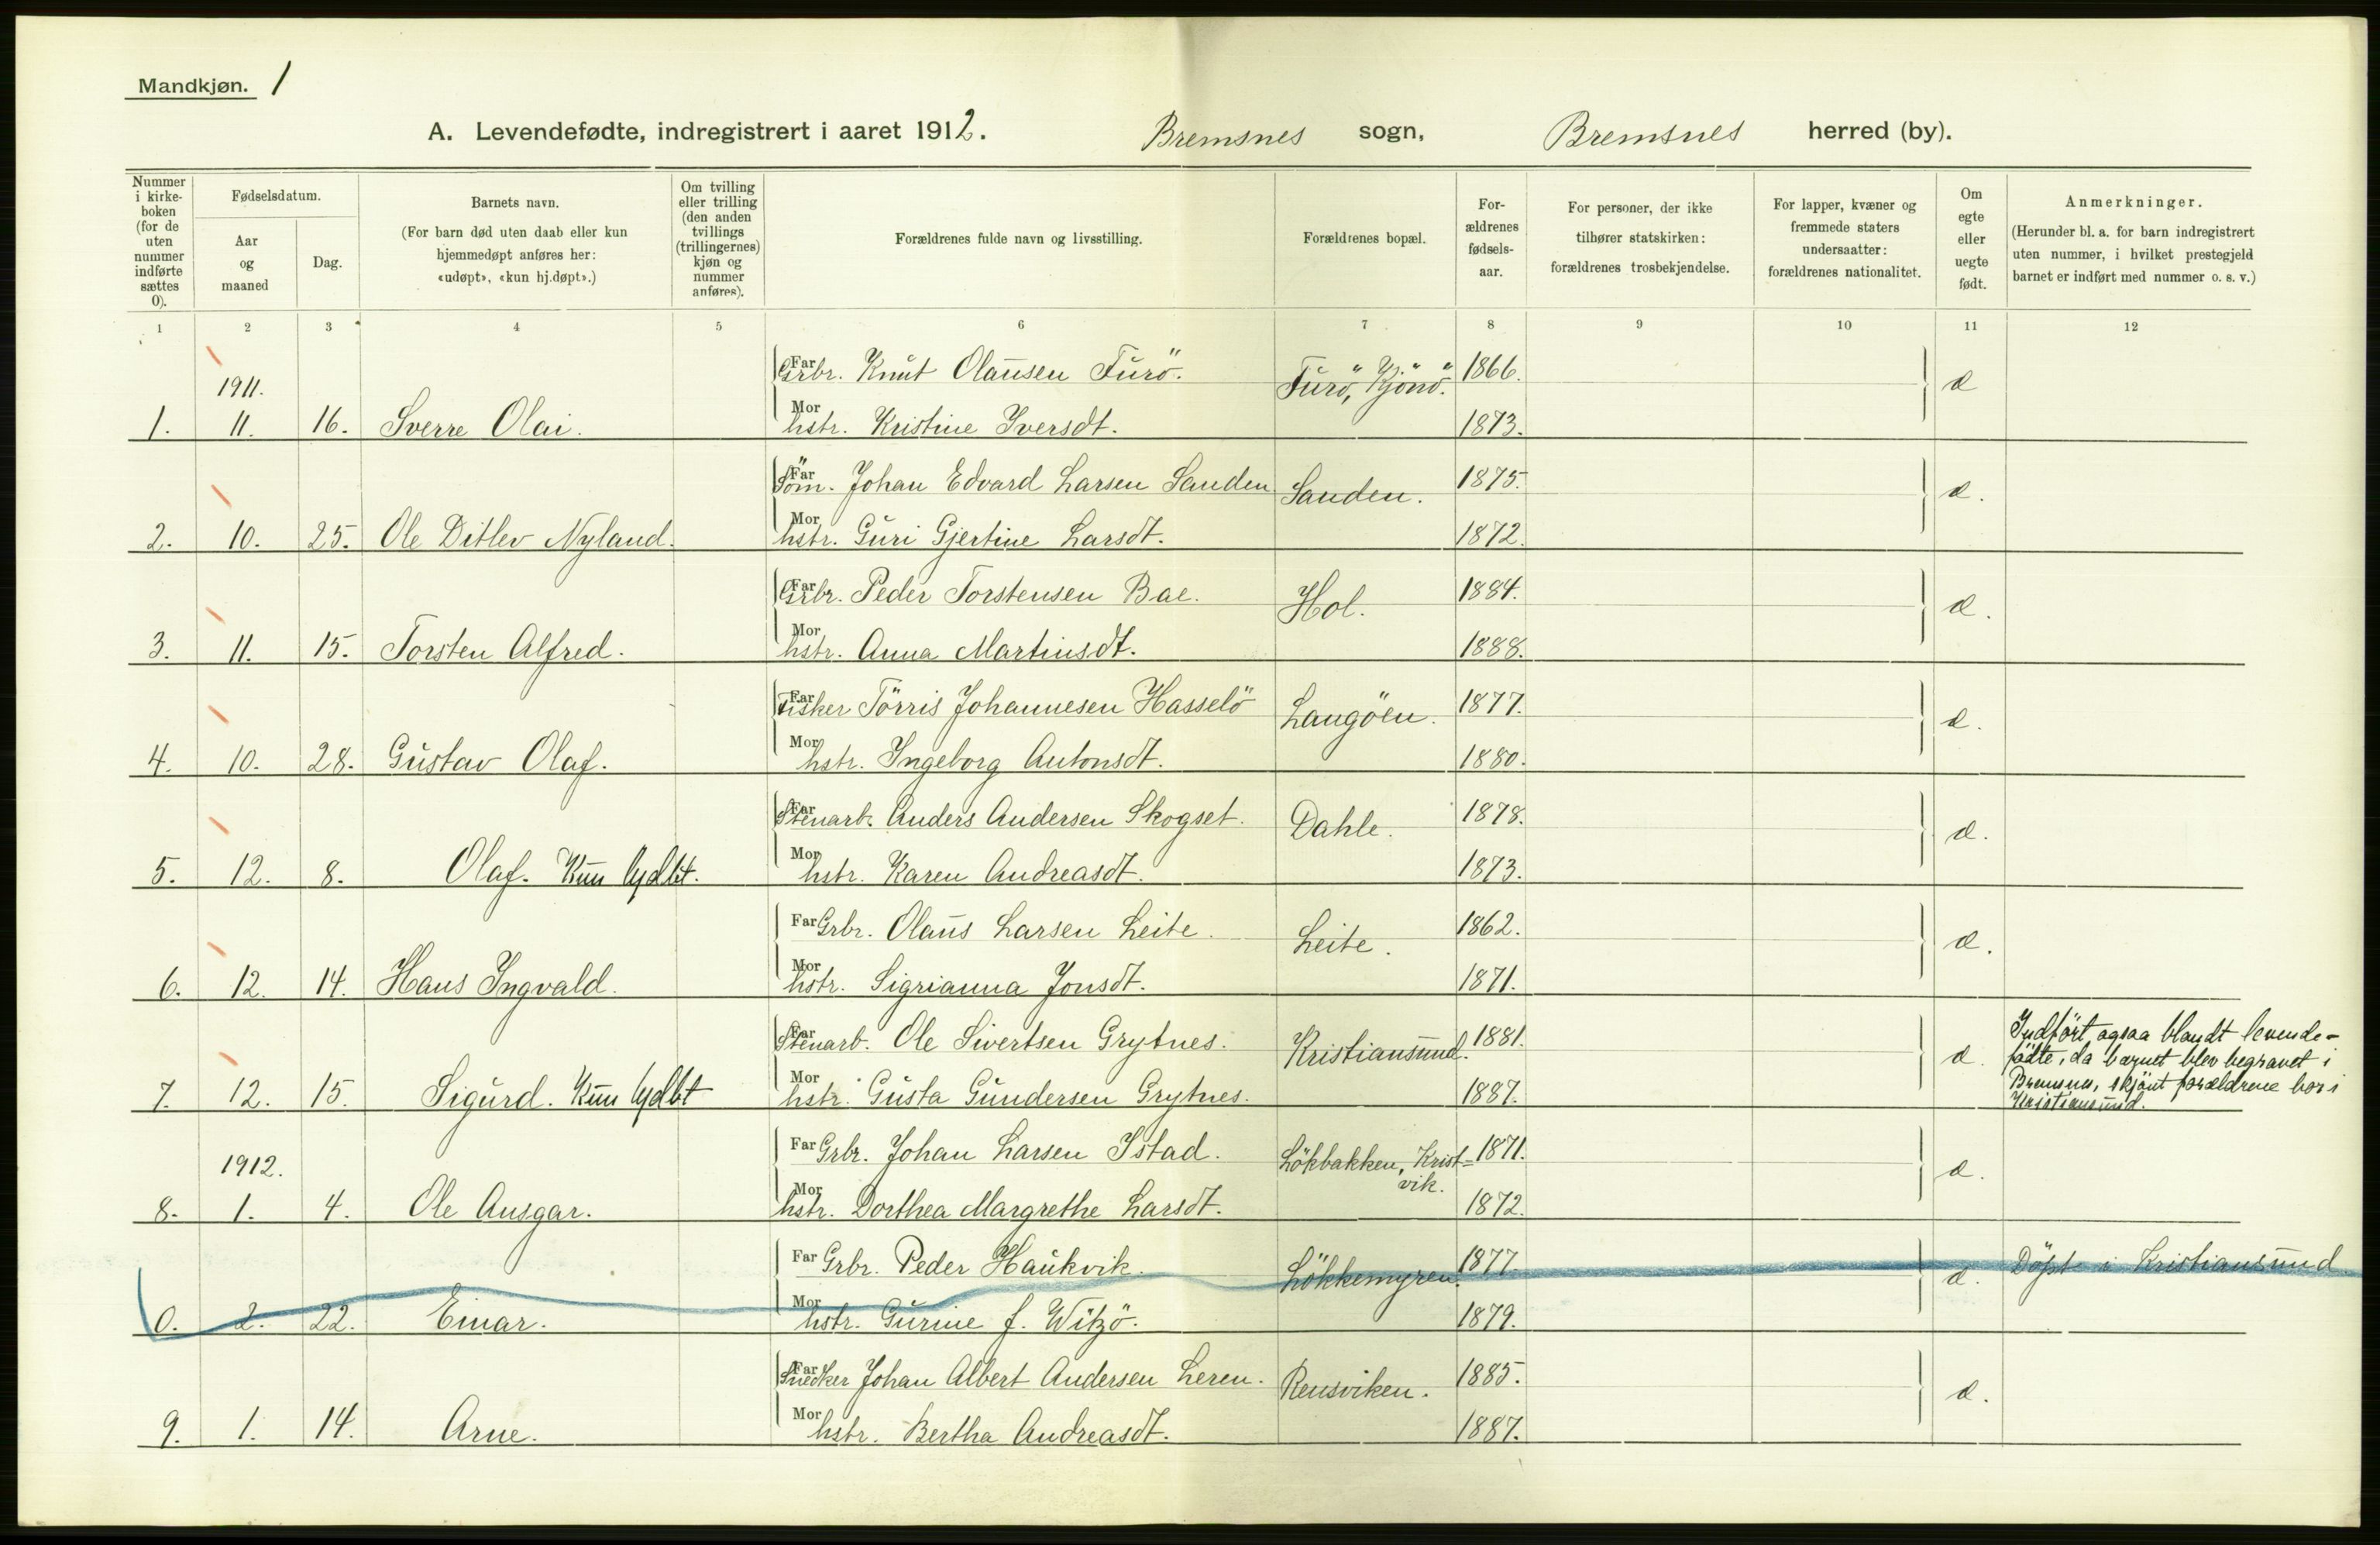 Mandkjøn. 1
A. Levendefødte, indregistrert i aaret 1912. Bremsnes sogn, Bremsnes herred (by).
Nummer i kirke-boken (for de uten nummer indførte sættes 0).
Fødselsdatum.
Aar og maaned
Dag.
Barnets navn.
(For barn død uten daab eller kun hjemmedøpt anføres her: «udøpt», «kun hj.døpt».)
Om tvilling eller trilling (den anden tvillings (trillingernes) kjøn og nummer anføres).
Forældrenes fulde navn og livsstilling.
Forældrenes bopæl.
For-ældrenes fødsels-aar.
For personer, der ikke tilhører statskirken: forældrenes trosbekjendelse.
For lapper, kvæner og fremmede staters undersaatter: forældrenes nationalitet.
Om egte eller uegte født.
Anmerkninger.
(Herunder bl. a. for barn indregistrert uten nummer, i hvilket prestegjeld barnet er indført med nummer o. s. v.)
1 2 3 4 5 6 7 8 9 10 11 12
1911.
Far Grbr. Knut Olausen Furö. Furö, Kjönö. 1866. e
1. 11. 16. Sverre Olai. Mor hstr. Kristine Iversdt. 1873.
Far Söm. Johan Edvard Larsen Sanden Sanden. 1875. e.
2. 10. 25. Ole Ditlev Nyland. Mor hstr. Guri Gjertine Larsdt. 1872.
Far Grbr. Peder Torstensen Bae. Hol. 1884. e.
3. 11. 15. Torsten Alfred. Mor hstr. Anna Martinsdt. 1888.
Far Fisker Törris Johannesen Hasselö Langöen. 1877. e.
4. 10. 28. Gustav Olaf. Mor hstr. Ingeborg Antonsdt. 1880.
Far Stenarb. Anders Andersen Skogset. Dahle. 1878. e.
5. 12. 8. Olaf. Kun hjdbt. Mor hstr. Karen Andreasdt. 1873.
Far Grbr. Olaus Larsen Leite. Leite. 1862. e.
6. 12. 14. Hans Ingvald. Mor hstr. Sigrianna Jonsdt. 1871.
Far Stenarb. Ole Sivertsen Grytnes. Kristiansund. 1881. e. Indført ogsaa blandt levende-
fødte, da barnet blev begravet i
Bremsnes, skjönt forældrene bor i
Kristiansund.
7. 12. 15. Sigurd. Kun hjdbt Mor hstr. Gusta Gundersen Grytnes. 1887.
1912.
Far Grbr. Johan Larsen Istad. Lökbakken, Krist=
vik. 1871. e.
8. 1. 4. Ole Ansgar. Mor hstr. Dorthea Margrethe Larsdt. 1872.
Far Grbr. Peder Haukvik. Lökkemyren. 1877. e. Döpt i Kristiansund
0. 2. 22. Einar. Mor hstr. Gurine f. Witzö. 1879.
Far Snedker Johan Albert Andersen Leren. Rensviken. 1885. e.
9. 1. 14. Arne. Mor hstr. Bertha Andreasdt. 1887.